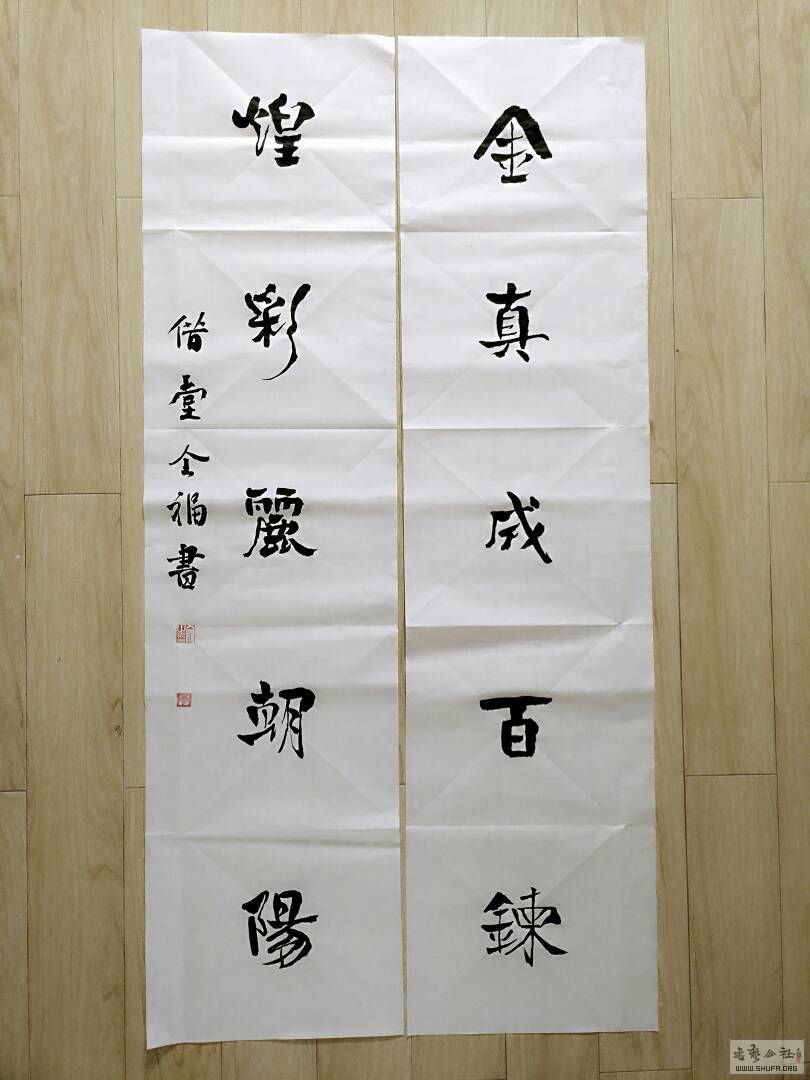 金真成百鍊
煌彩麗朝陽
偕堂全福書
書藝公社
WWW.SHUFA.ORG